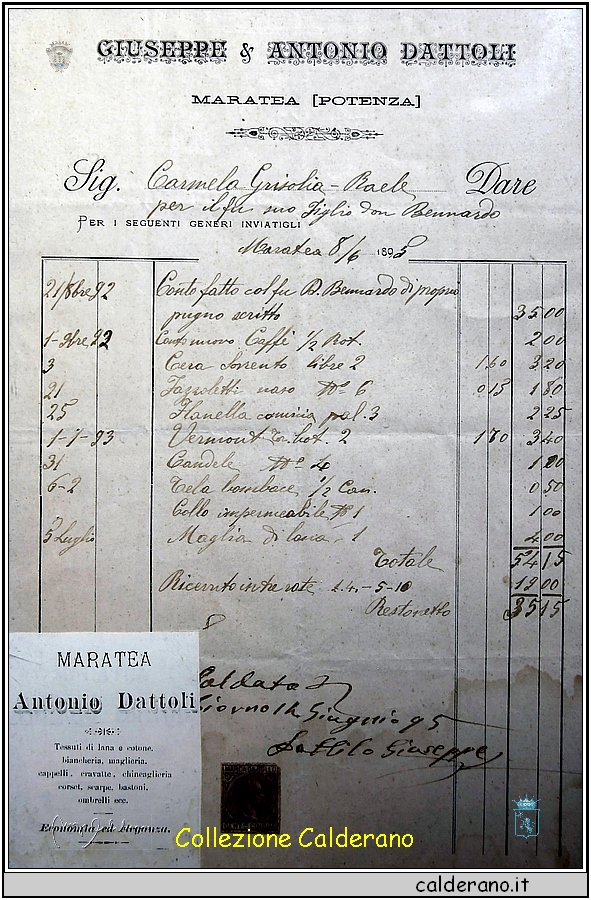 GIUSEPPE & ANTONIO DATTOLI
MARATEA [POTENZA]
Sig. Carmela Grisolia - Raele Dare
per il fu suo Figlio don Bennardo
PER I SEGUENTI GENERI INVIATIGLI
Maratea 8/6 1895
21/8bre 92 Conto fatto col fu D. Bennardo di proprio
pugno scritto 35 00
1-9bre 92 Conto nuovo Caffè 1/2 Rot. 2 00
3 Cera Sorrento libre 2 1.60 3 20
21 Fazzoletti naso No 6 0.15 1 80
25 Flanella camicia pal. 3 2 25
1-1-93 Vermont bot. 2 1 70 3 40
31 Candele No 4 1 00
6-2 Tela bombace 1/2 Can. 0 50
Collo impermeabile No 1 1 00
5 Luglio Maglia di lana 1 4 00
Totale 54 15
Ricevuto in tre rate 2.4.-5-10 19 00
Resto netto 35 15
Saldato
Giorno 12 Giugnio 95
Dattilo Giuseppe
MARATEA
Antonio Dattoli
Tessuti di lana e cotone,
biancheria, maglieria,
cappelli, cravatte, chincaglieria
corset, scarpe, bastoni,
ombrelli ecc.
Economia ed eleganza.
Collezione Calderano
calderano.it